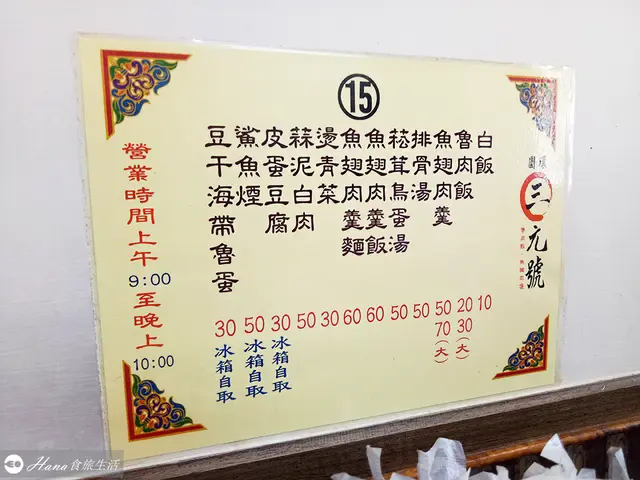 15
圓環
三元號
白飯 10
魯肉飯 20 30(大)
魚翅肉羹 50 70(大)
排骨湯 50
菘茸鳥蛋湯 50
魚翅肉羹飯 60
魚翅肉羹麵 60
燙青菜 30
蒜泥白肉 50
皮蛋豆腐 30 冰箱自取
鯊魚煙 50 冰箱自取
豆干海帶魯蛋 30 冰箱自取
營業時間上午9:00至晚上10:00
Hana食旅生活